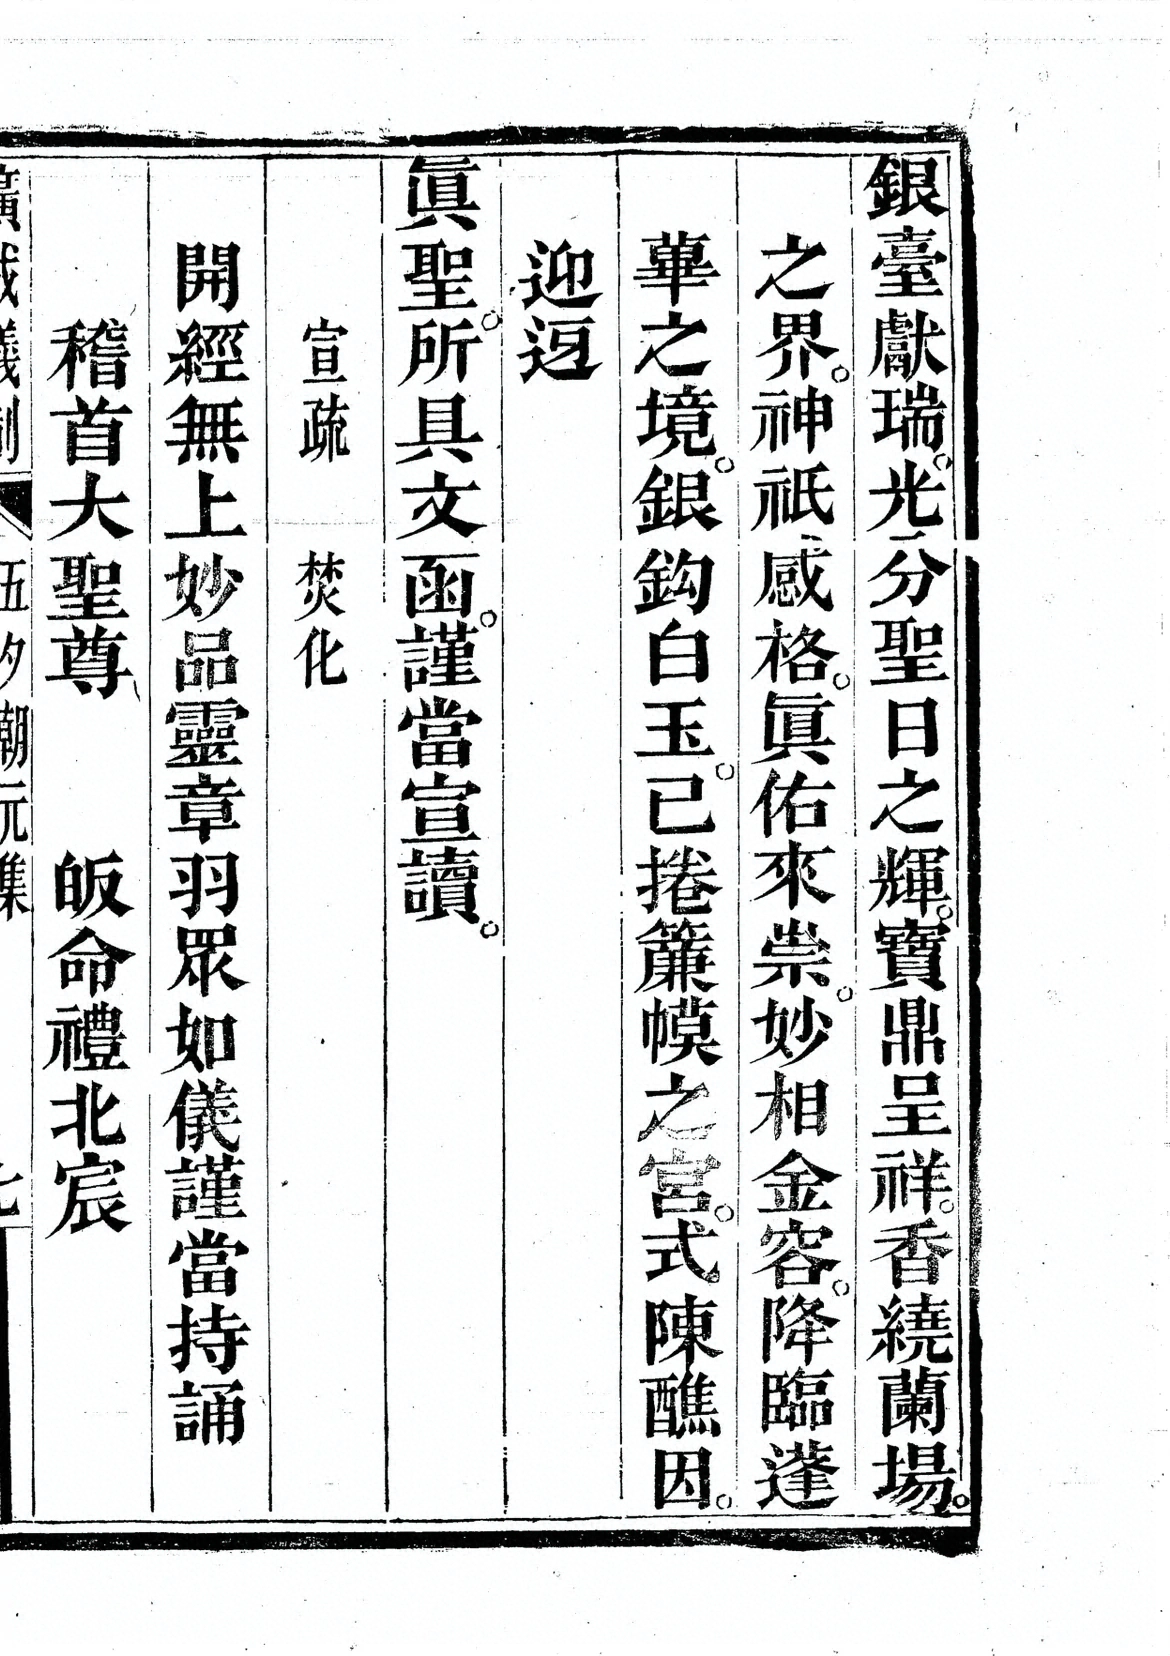 銀臺獻瑞。光分聖日之輝。寶鼎呈祥。香繞蘭場。
之界。神祇感格。眞佑來崇。妙相金容。降臨蓬
華之境。銀鈎白玉。已捲簾幙之宮。式陳醮因。
迎迓
眞聖。所具文函。謹當宣讀。
宣疏 焚化
開經無上妙品靈章羽眾如儀謹當持誦
稽首大聖尊 皈命禮北宸
廣成儀制 五夕朝元集 七